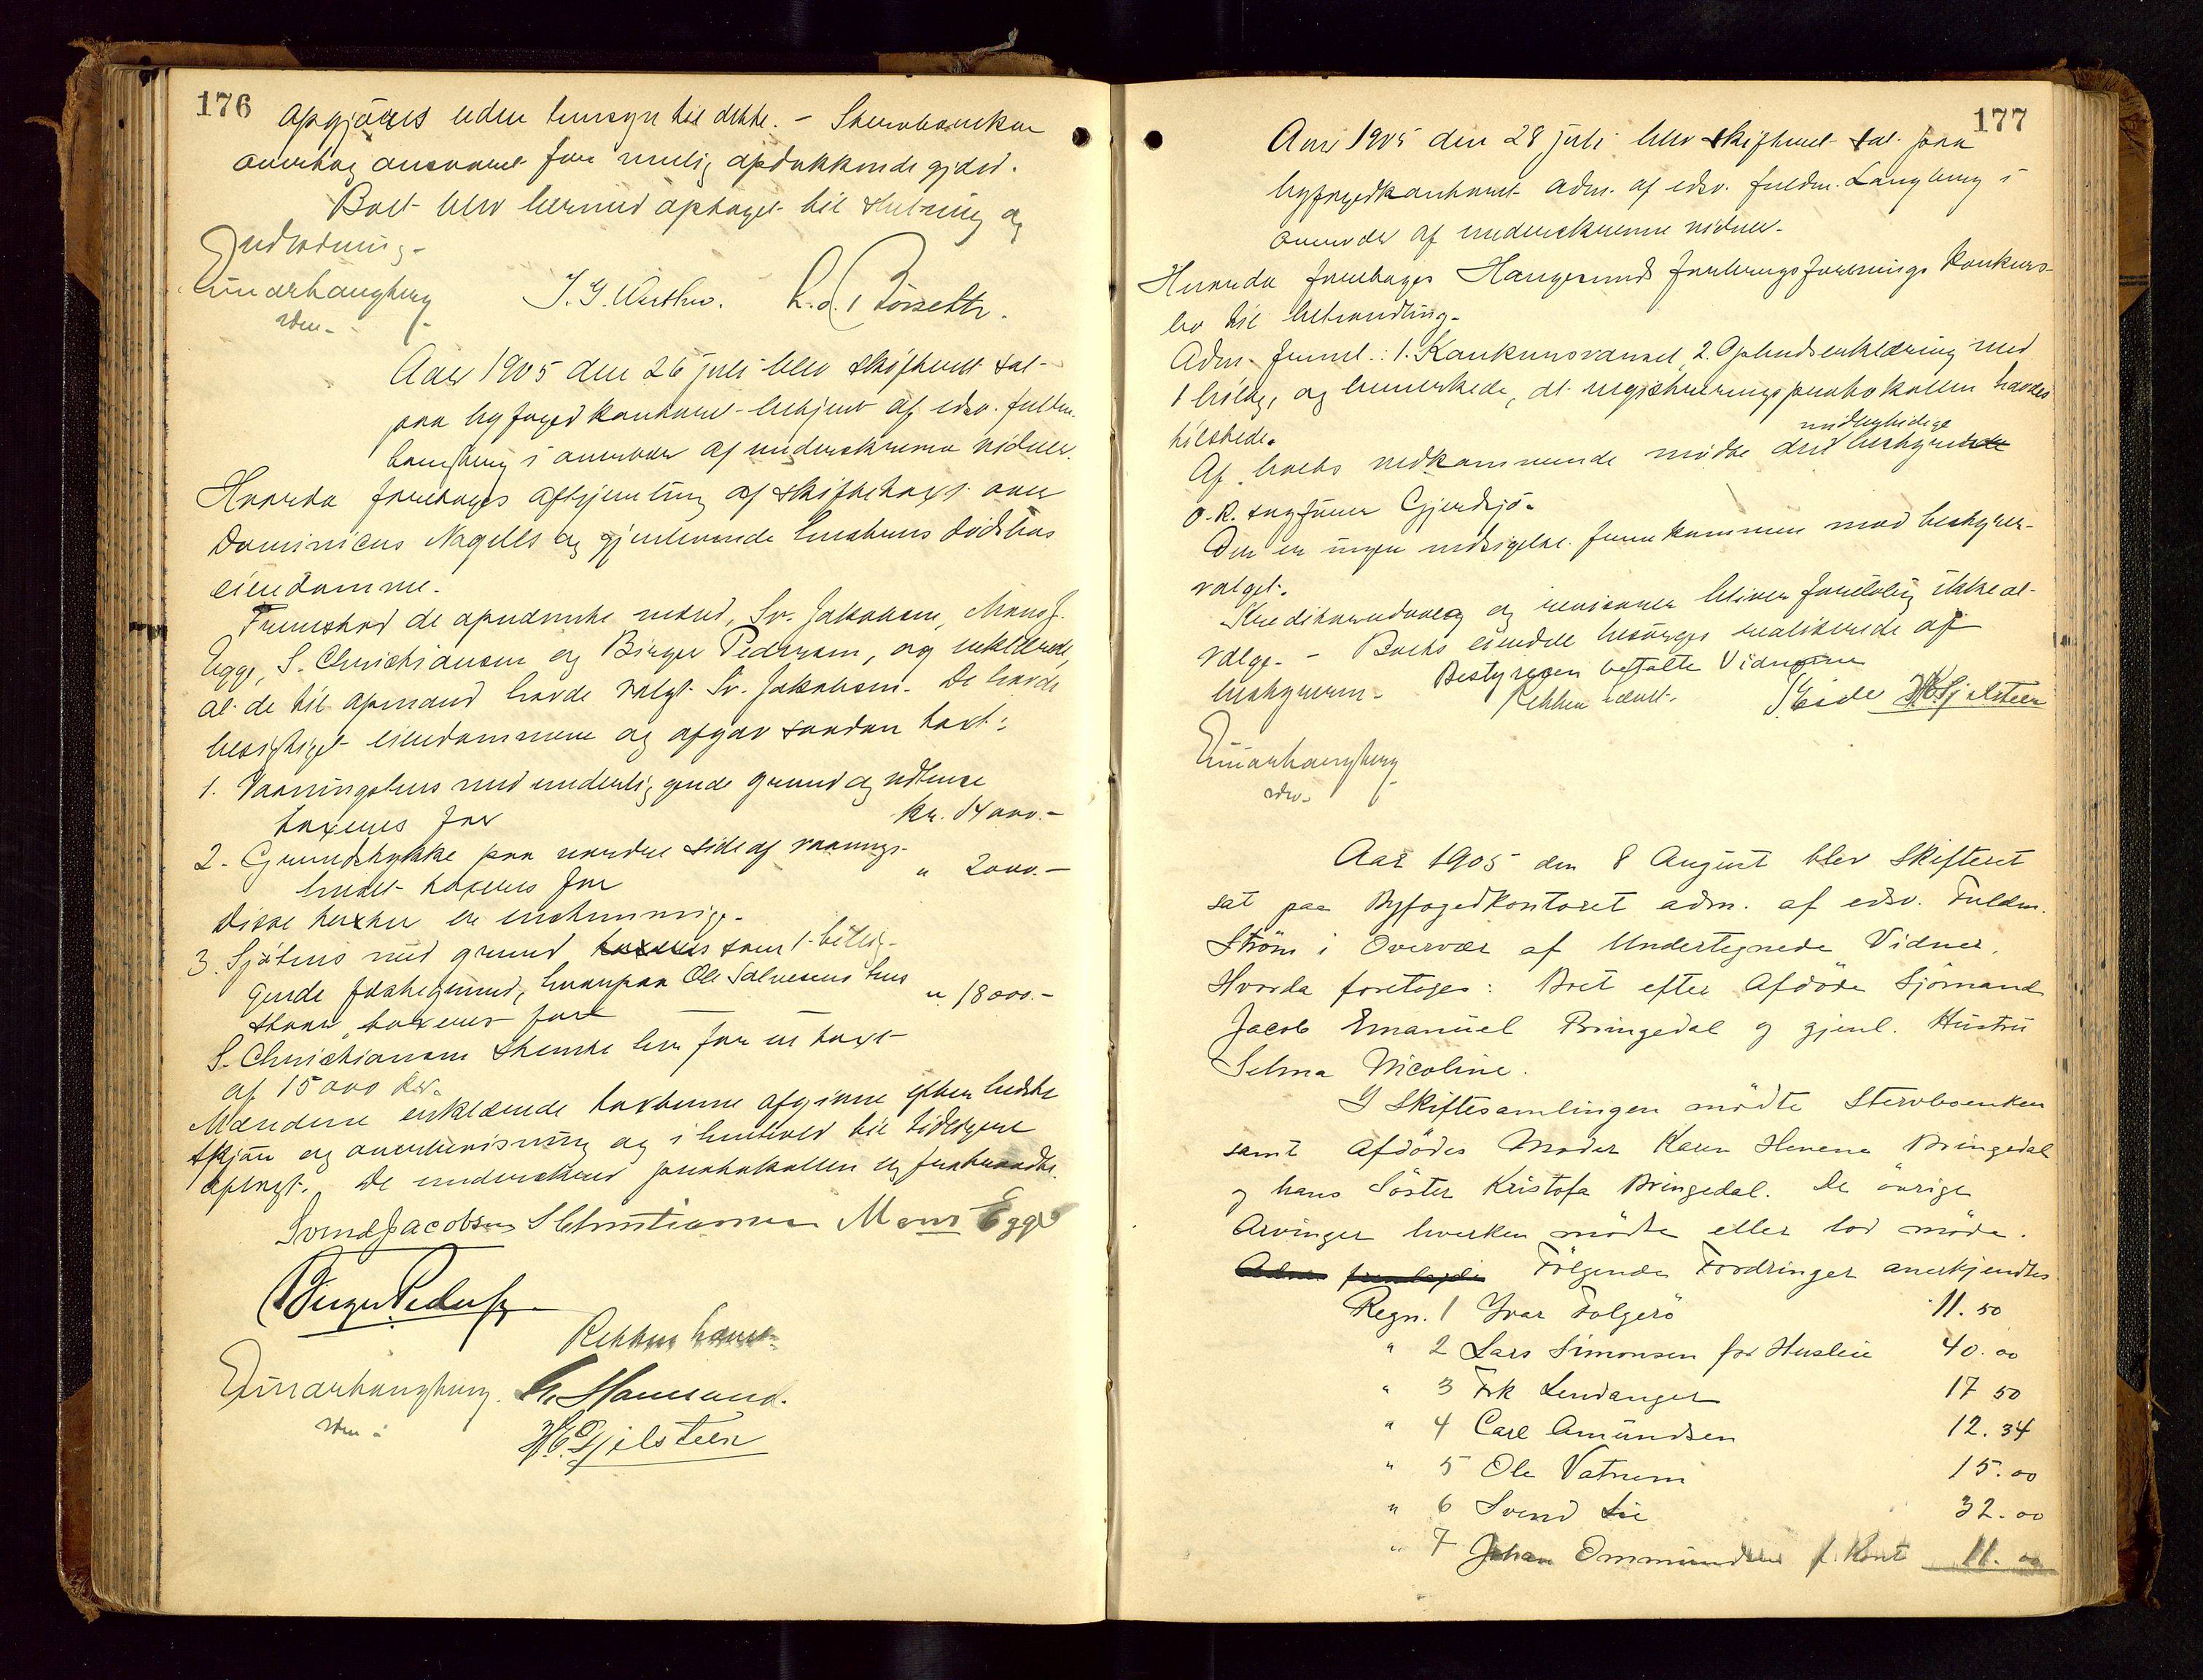 176
opgjøres uden hensyn til dette. - Stervboenken
overtog ansvaret for mulig opdukkende gjæld.
Boet blev hermed optaget til slutning og
Udlodning.
Einar Langberg
edsv.
Aar 1905 den 26 juli blev skifteret sat
paa byfogedkontoret betjent af edsv. fuldm.
Langberg i overvær af underskrevne vidner.
Hvorda foretoges afhjemling af skiftetaxt over
Dominicus Nagells og gjenlevende hustrus dødsbos
eiendomme.
Fremstod de opnævnte mænd, Sv. Jakobsen, Mons J.
Egge, S. Christiansen og Birger Pedersen, og erklærede,
at de til opmand havde valgt Sv. Jakobsen. De havde
besigtiget eiendommene og afgav saadan taxt:
1. Vaaningshus med underliggende grund og udhuse
taxeres for kr. 14000.-
2. Grundstykke paa nordre side af vaanings-
huset taxeres for " 2000.-
Disse taxter er enstemmige.
3. Sjøhus med grund taxeres samt 1 belig-
gende fæstegrund, hvorpaa Ole Salvesens hus
staar, taxeres for " 18000.-
S. Christiansen stemte her for en taxt
af 15000 kr.
Mændene erklærede taxterne afgivne efter bedste
skjøn og overbevisning og i henhold til tidligere
aflagt. De underskrev protokollen og fratraadte.
Svend Jacobsen S Christiansen Mons Egge
Birger Pedersen
Retten hævet.
Einar Langberg.
edsv.
H. C. Gjilsteen
177
Aar 1905 den 28 juli blev skifteret sat paa
byfogedkontoret adm. af edsv. fuldm. Langberg i
overvær af underskrevne vidner.
Hvorda foretoges Haugesunds forbrugsforenings konkurs-
bo til behandling.
Adm. freml.: 1. Konkursvarsel, 2. Opbudserklæring med
1 bilag, og bemerkede, at registreringsprotokollen havdes
tilstede.
midlertidige
Af boets vedkommende mødte den bestyrende
O.R. sagfører Gjerdsjø.
Der er ingen indsigelse fremkommen mod bestyrer-
valget.
Kreditorudvalg og revisorer bliver foreløbig ikke at
vælge. - Boets eiendele besørges realiserede af
bestyreren. Bestyreren betalte Vidnerne
Retten hævet. Eide H. C. Gjilsteen
Einar Langberg
edsv.
Aar 1905 den 8 August blev Skifteret
sat paa Byfogedkontoret adm. af edsv. Fuldm.
Strøm i Overvær af Undertegnede Vidner.
Hvorda foretoges: Boet efter Afdøde Sjømand
Jacob Emanuel Bringedal og gjenl. Hustru
Selma Nicoline.
I Skiftesamlingen mødte Stervboenken
samt Afdødes Moder Karen Bringedal
og hans Søster Kristofa Bringedal. De øvrige
Arvinger hverken mødte eller lod møde.
Adm. fremlagde Følgende Fordringer anerkjendtes
Regn. 1 Ivar Folgerø 11.50
" 2 Lars Simonsen for Husleie 40.00
" 3 Frk Lendanger 17 50
" 4 Carl Amundsen 12.34
" 5 Ole Vatnem 15.00
" 6 Svend Lie 32.00
" 7 Johan Ommundsen f. Kont 11.00